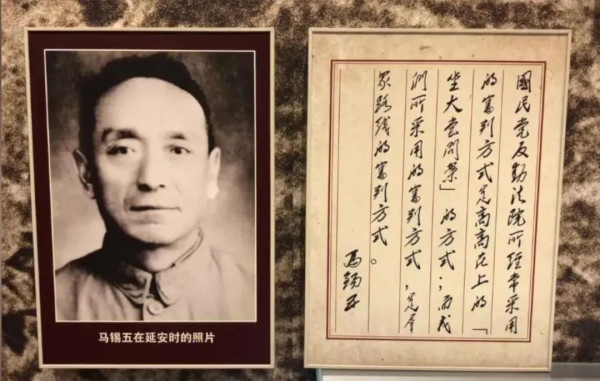 马锡五在延安时的照片
國民党反動法院所經常采用
的審判方式是高高在上的「
坐大堂問案」的方式；而我
們所采用的審判方式，是羣
眾路线的審判方式。
馬錫五